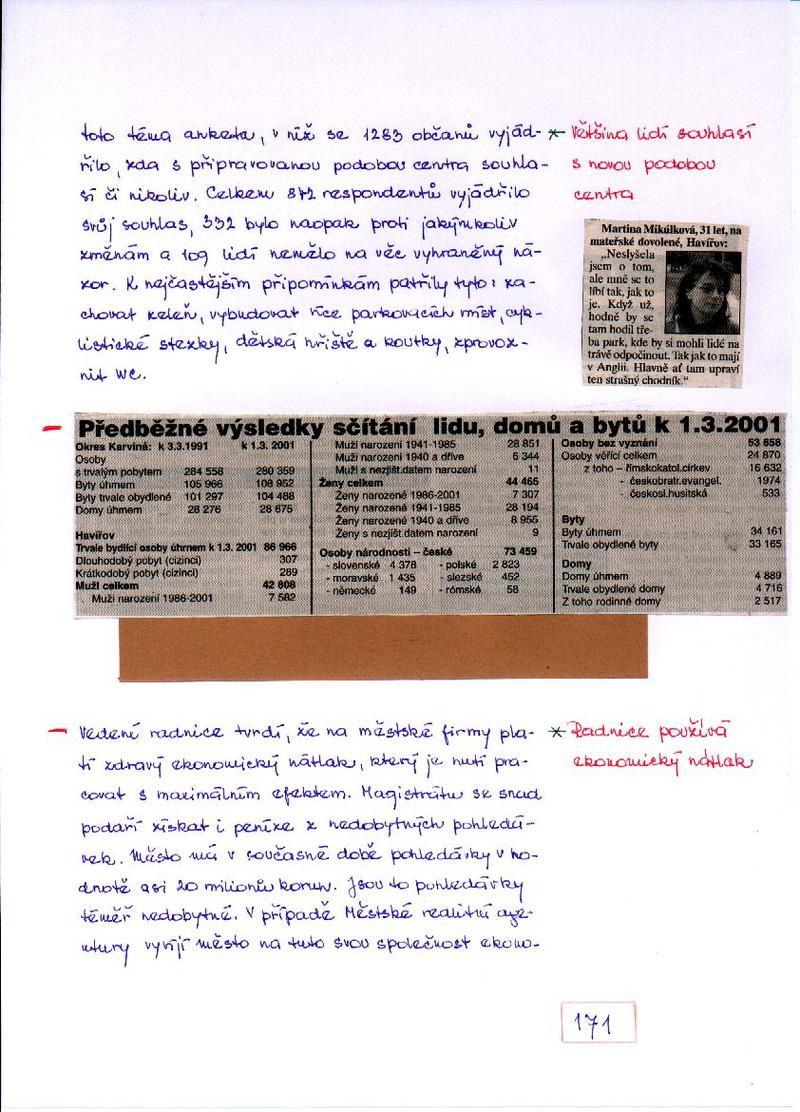 toto téma anketa, v níž se 1283 občanů vyjád-
řilo, zda s připravovanou podobou centra souhla-
sí či nikoliv. Celkem 842 respondentů vyjádřilo
svůj souhlas, 332 bylo naopak proti jakýmkoliv
změnám a 109 lidí nemělo na věc vyhraněný ná-
zor. K nejčastějším připomínkám patřily tyto: za-
chovat zeleň, vybudovat více parkovacích míst, cyk-
listické stezky, dětská hřiště a koutky, zprovoz-
nit WC.
* Většina lidí souhlasí
s novou podobou
centra
Martina Mikúlková, 31 let, na
mateřské dovolené, Havířov:
„Neslyšela
jsem o tom,
ale mně se to
líbí tak, jak to
je. Když už,
hodně by se
tam hodil tře-
ba park, kde by si mohli lidé na
trávě odpočinout. Tak jak to mají
v Anglii. Hlavně ať tam upraví
ten strašný chodník.“
– Předběžné výsledky sčítání lidu, domů a bytů k 1.3.2001
Okres Karviná: k 3.3.1991 k 1.3. 2001
Osoby
s trvalým pobytem 284 558 280 359
Byty úhrnem 105 966 108 952
Byty trvale obydlené 101 297 104 488
Domy úhrnem 28 276 28 675
Havířov
Trvale bydlící osoby úhrnem k 1.3. 2001 86 966
Dlouhodobý pobyt (cizinci) 307
Krátkodobý pobyt (cizinci) 289
Muži celkem 42 808
Muži narození 1986-2001 7 582
Muži narození 1941-1985 28 851
Muži narození 1940 a dříve 6 344
Muži s nezjišt.datem narození 11
Ženy celkem 44 465
Ženy narozené 1986-2001 7 307
Ženy narozené 1941-1985 28 194
Ženy narozené 1940 a dříve 8 955
Ženy s nezjišt.datem narození 9
Osoby národnosti – české 73 459
- slovenské 4 378 - polské 2 823
- moravské 1 435 - slezské 452
- německé 149 - rómské 58
Osoby bez vyznání 53 658
Osoby věřící celkem 24 870
z toho – římskokatol.církev 16 632
- českobratr.evangel. 1974
- českosl.husitská 533
Byty
Byty úhrnem 34 161
Trvale obydlené byty 33 165
Domy
Domy úhrnem 4 889
Trvale obydlené domy 4 716
Z toho rodinné domy 2 517
– Vedení radnice tvrdí, že na městské firmy pla-
tí zdravý ekonomický nátlak, který je nutí pra-
covat s maximálním efektem. Magistrátu se snad
podaří získat i peníze z nedobytných pohledá-
vek. Město má v současné době pohledávky v ho-
dnotě asi 20 milionů korun. Jsou to pohledávky
téměř nedobytné. V případě Městské realitní age-
ntury vyvíjí město na tuto svou společnost ekono-
* Radnice používá
ekonomický nátlak
171